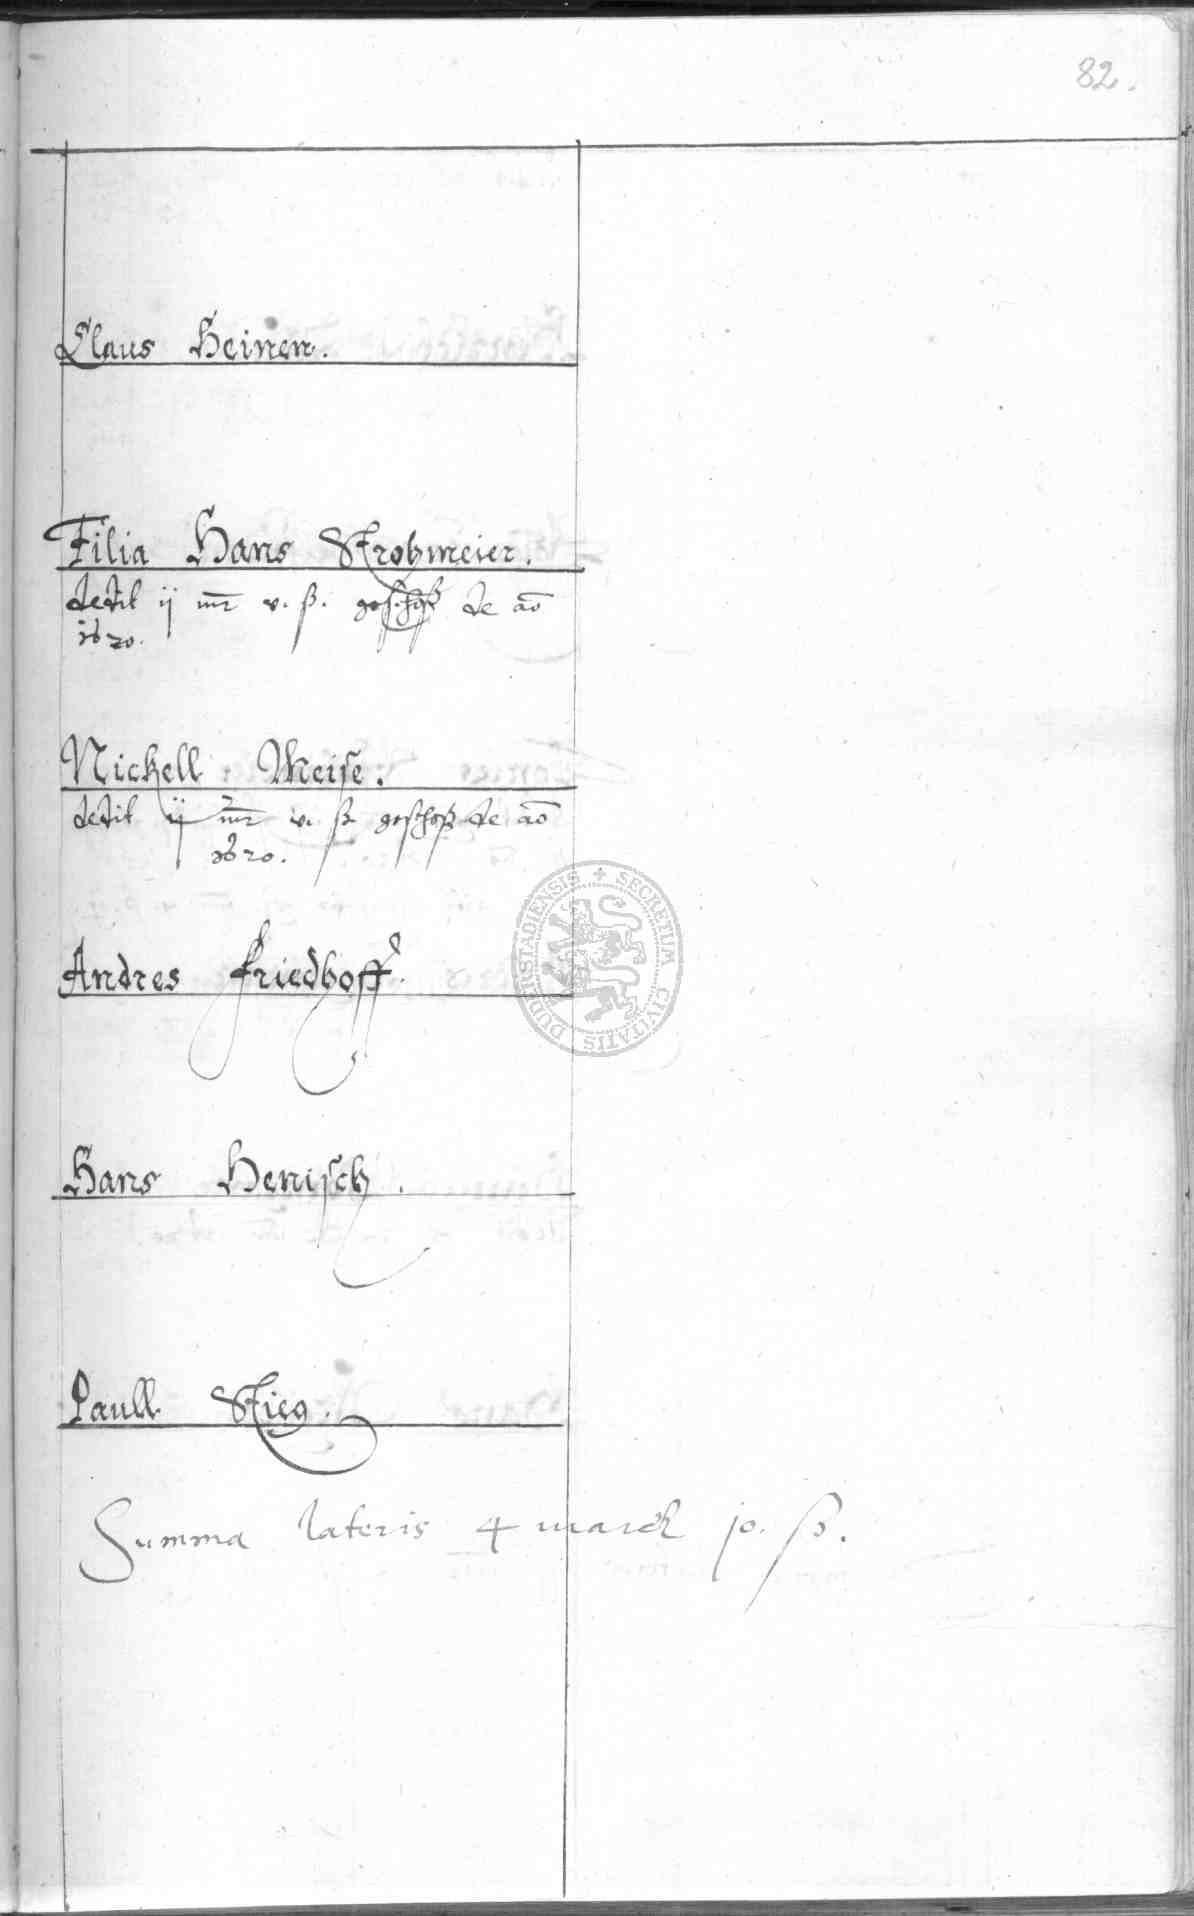 82.
Claus Heinen.
Filia Hans Strohmeier.
dedit ij mr v. ß. geschoß de ao
1620.
Nickell Weise.
dedit ij mr v. ß geschoß de ao
1620.
Andres Friedhoff.
Hans Henisch.
Paull Stieg.
Summa lateris 4 marck jo. ß.
SECRETUM CIVITATIS DUDERSTADIENSIS